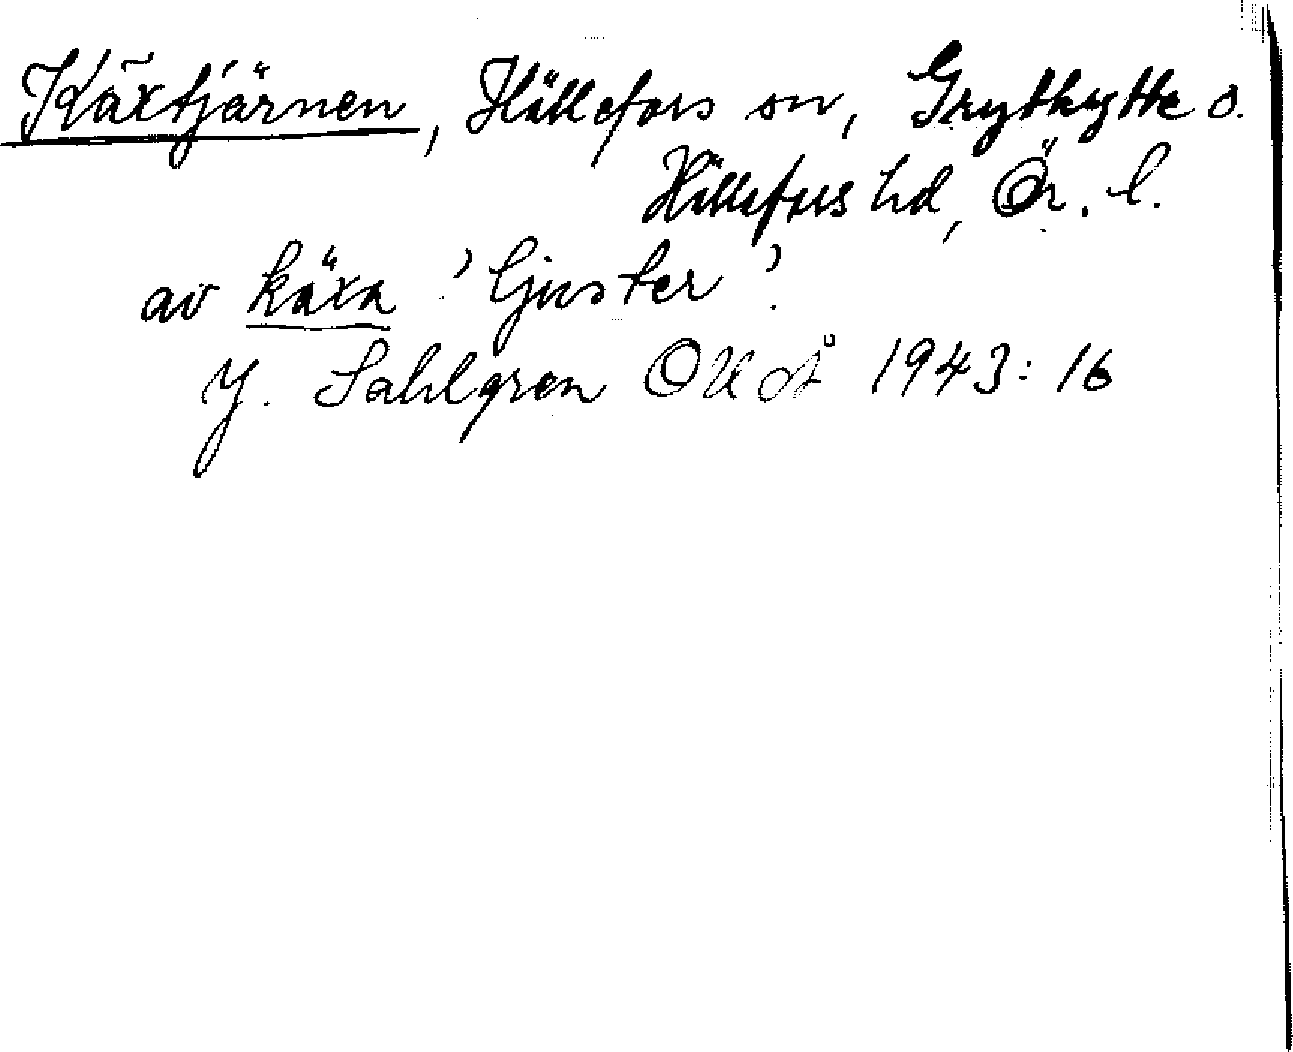 Käxtjärnen, Hällefors sn, Grythytte o.
Hällefors hd, Ör. l.
av käxa 'ljuster'.
J. Sahlgren OUoÅ 1943: 16